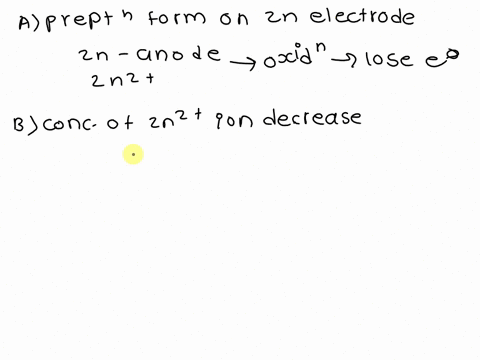 A) prept n form on Zn electrode
Zn - anode → oxid n → lose e⊖
Zn 2+
B) conc. of Zn 2+ ion decrease